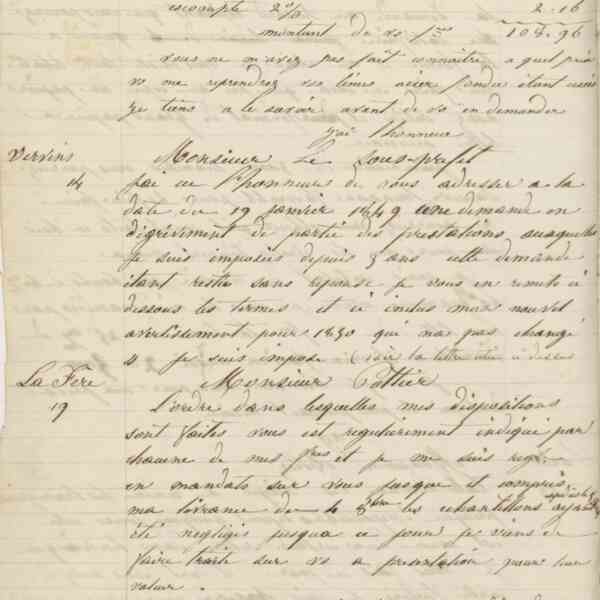 escompte 2 % 2.16
montant de vs fres 108.96
vous ne m'avez pas fait connaitre a quel prix
vs me reprendrez vos limes acier fondu étant usées
je tiens a le savoir avant de vs en demander
j'ai l'honneur
Vervins Monsieur Le Sous-préfet
14 J'ai eu l'honneur de vous adresser a la
date du 19 janvier 1849 une demande en
dégrèvement de partie des prestations auxquelles
je suis imposées depuis 3 ans cette demande
étant restée sans reponse je vous en remets ci
dessous les termes et ci inclus mon nouvel
avertissement pour 1850 qui n'a pas changé
Je suis imposé (voir la lettre citée ci dessus
La Fère Monsieur Pottier
19 L'ordre dans lesquelles mes dispositions
sont faites vous est regulierement indiqué par
chacune de mes fres et je me suis regl.
en mandats sur vous jusque et compris
ma livrance du 4 8bre les echantillons ayant
été negligés jusqua ce jour je viens de
faire traite sur vs a presentation pour leur
valeur.